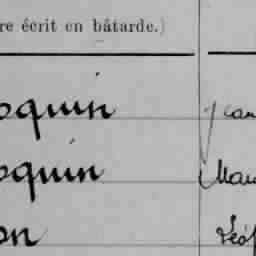 re écrit en bâtarde.)
oquin Jean
oquin Mau
on Léo